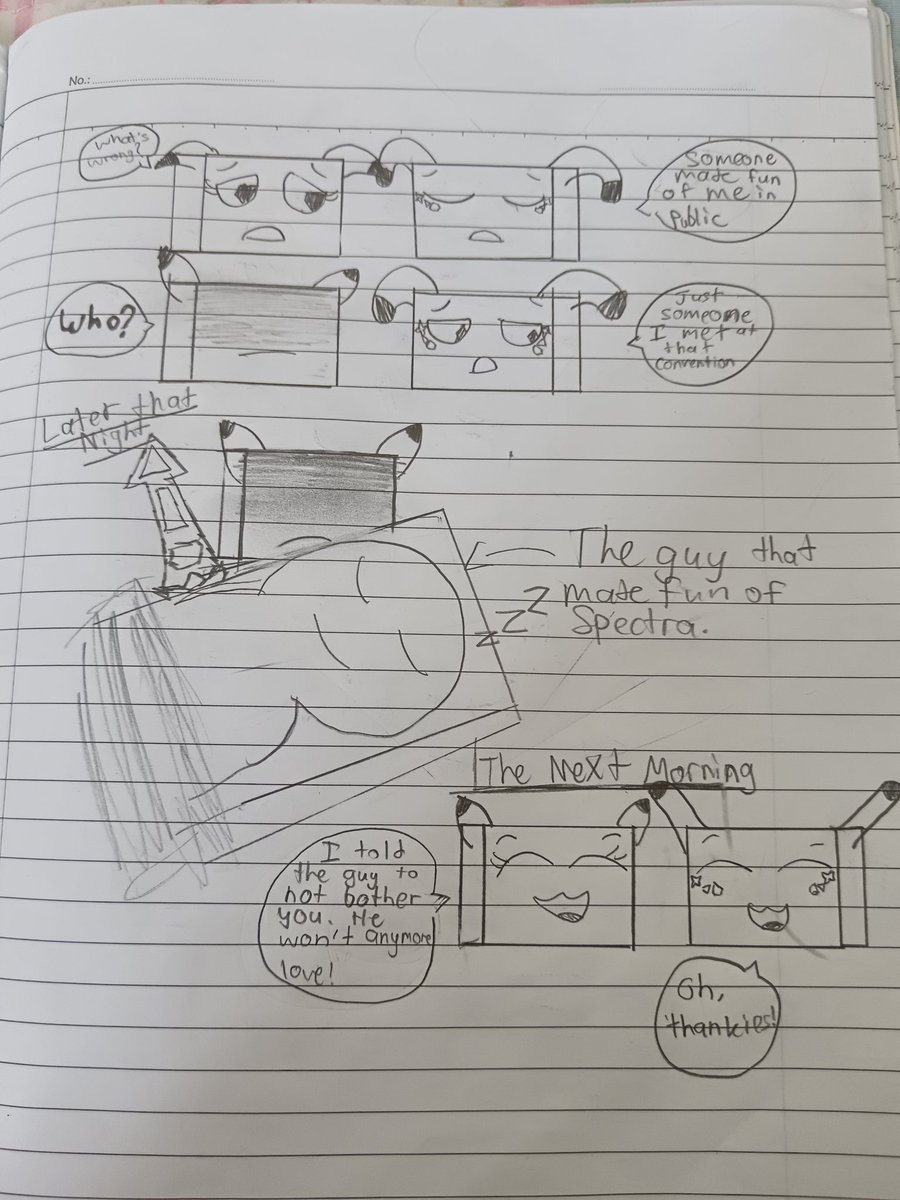 No.:
What's
wrong?
Someone
made fun
of me in
Public
Who?
Just
someone
I met at
that
convention
Later that
Night
The guy that
made fun of
Spectra.
z z Z
The Next Morning
I told
the guy to
not bother
you. He
won't anymore
love!
Oh,
thankies!